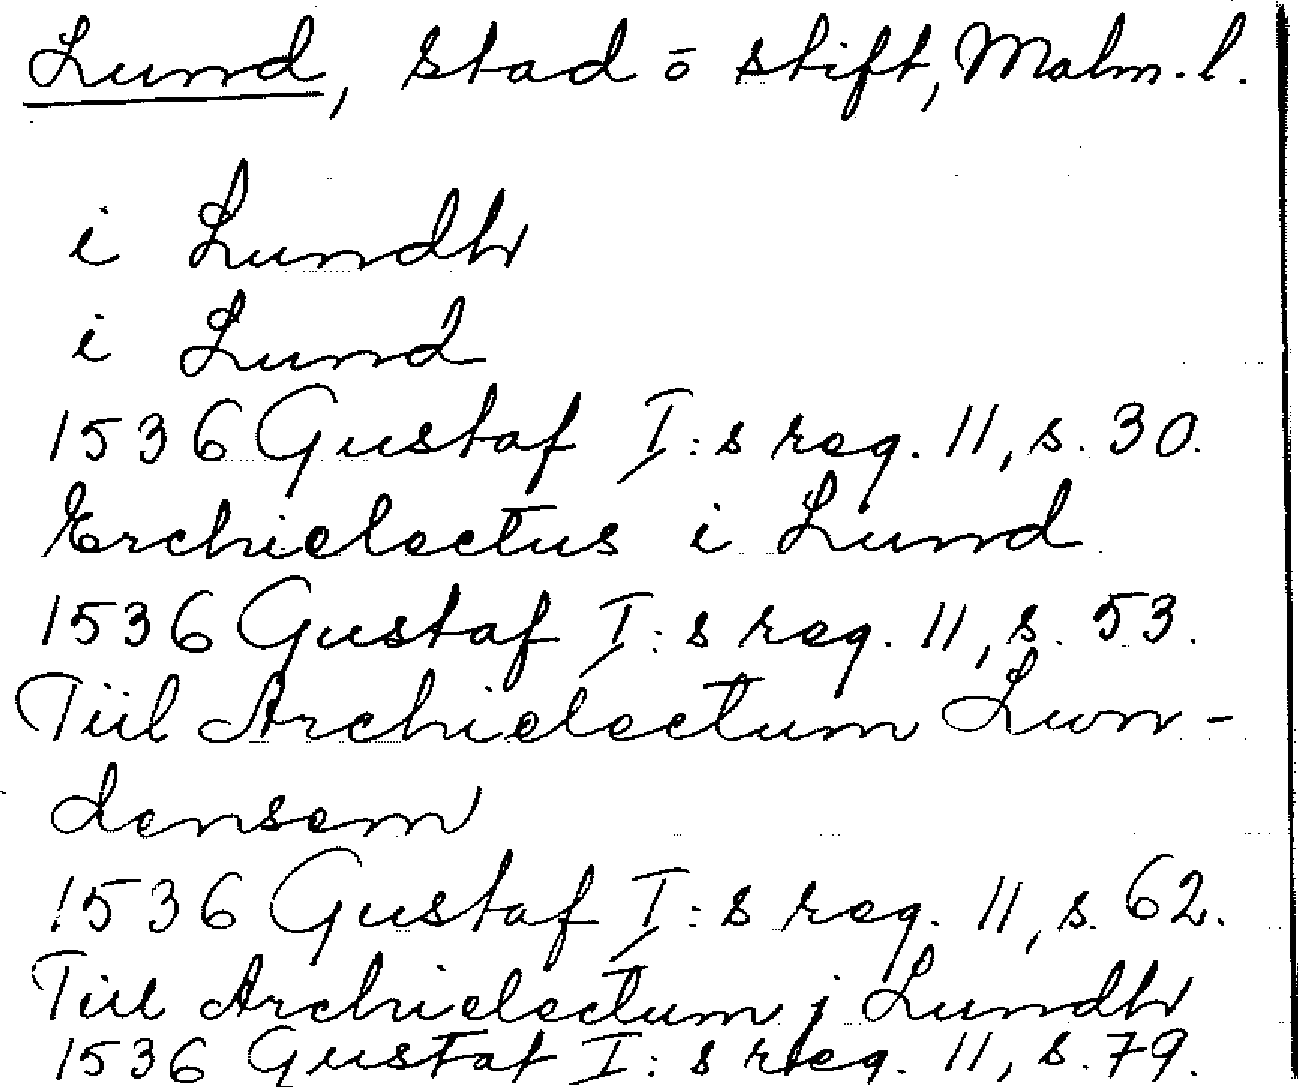 Lund, stad o stift, Malm. l.
i Lundh
i Lund
1536 Gustaf I:s reg. 11, s. 30.
Erchielectus i Lund
1536 Gustaf I:s reg. 11, s. 53.
Tiil Archielectum Lwn-
densem
1536 Gustaf I:s reg. 11, s. 62.
Tiil Archielectum j Lundh
1536 Gustaf I:s reg. 11, s. 79.